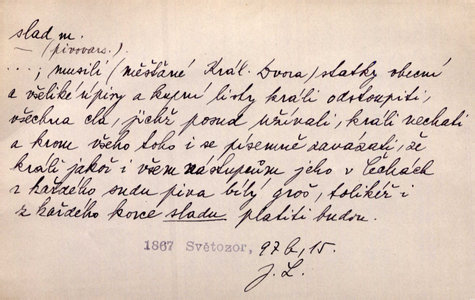 slad m.
— (pivovars.).
....; musili (měšťané Král. Dvora) statky obecní
a všeliké úpisy a kupní listy králi odstoupiti,
všechna cla, jichž posud užívali, králi nechati
a krom všeho toho i se písemně zavázati, že
králi jakož i všem nástupcům jeho v Čechách
z každého sudu piva bílý groš, tolikéž i
z každého korce sladu platiti budou.
1867 Světozor, 97b, 15.
J. L.